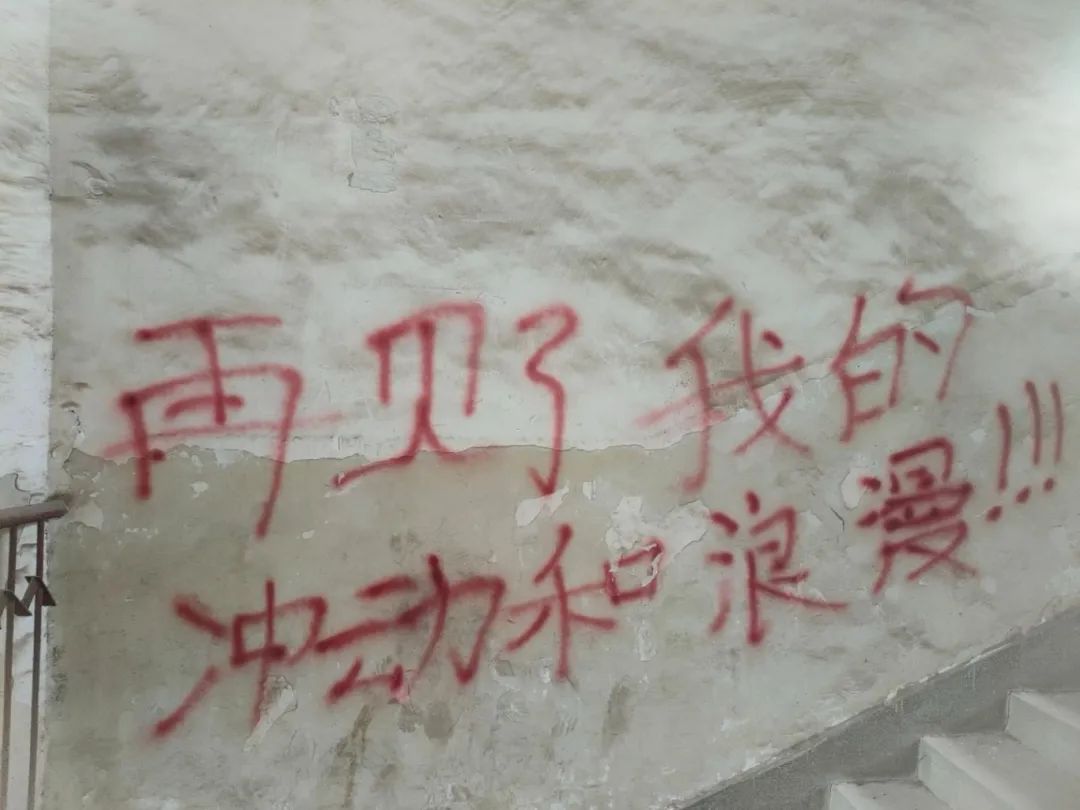 再见了我的
冲动和浪漫!!!